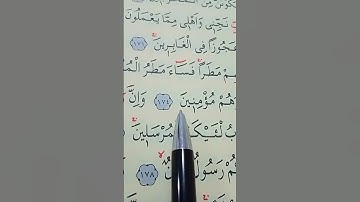 نَجِّنِي وَأَهْلِي مِمَّا يَعْمَلُونَ
عَجُوزًا فِي الْغَابِرِينَ ١٧١
مْ مَطَرًا فَسَاءَ مَطَرُ الْمُ
هُمْ مُؤْمِنِينَ ١٧٤ وَإِنَّ
بُ لْـَٔيْكَ الْمُرْسَلِينَ
مْ رَسُولٌ ١٧٨